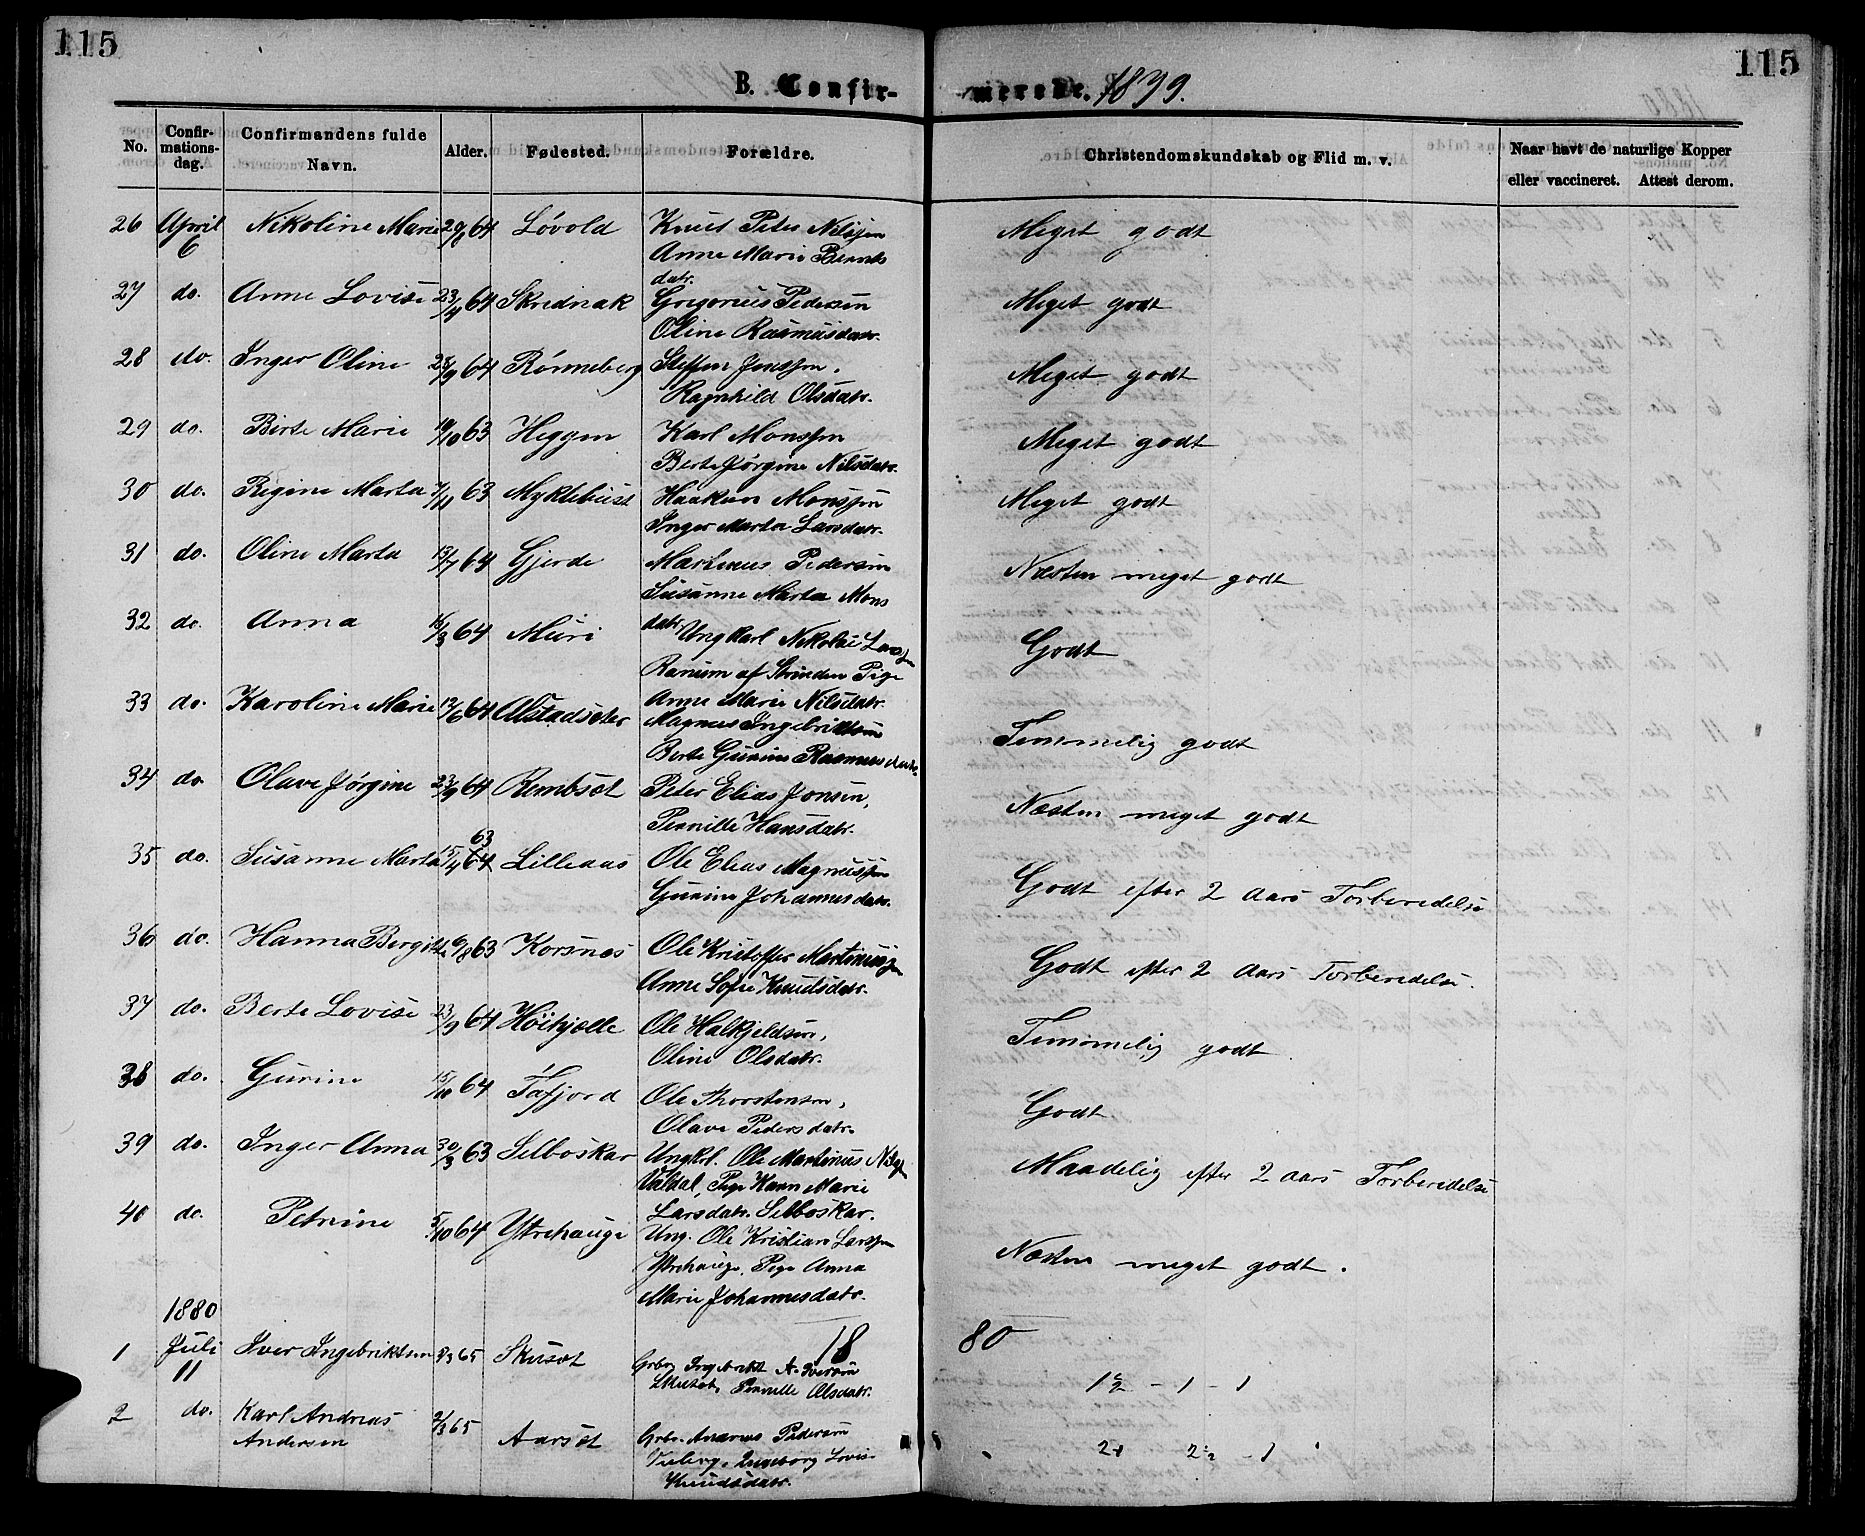 115
115
B. Confir-
merede. 1879.
No. Confirmationsdag. Confirmandens fulde Navn. Alder. Fødested. Forældre. Christendomskundskab og Flid m. v. Naar havt de naturlige Kopper eller vaccineret. Attest derom.
26 April 6 Nikoline Marie 29/8 64 Løvold Knut Peter Nilssen Meget godt
Anne Marie Bernts
datr.
27 do. Anne Lovise 23/4 64 Skrednak Gregorius Pedersen Meget godt
Oline Rasmusdatr.
28 do. Inger Oline 28/9 64 Rønneberg Steffen Jonssen. Meget godt
Ragnhild Olsdatr.
29 do. Birte Marie 19/10 63 Heggen Karl Monssen Meget godt
Berte Jørgine Nilsdatr.
30 do. Regine Marta 7/11 63 Myklebust Haakon Monssen Meget godt
Inger Marta Larsdatr.
31 do. Oline Marta 13/7 64 Gjerde Martinus Pedersen Næsten meget godt
Susanne Marta Mons
datr.
32 do. Anna 16/3 64 Muri Ungkarl Nikolai Larssen Godt
Ranum af Strinden Pige
Anne Marie Nilsdatr.
33 do. Karoline Marie 12/6 64 Alstadsæter Magnus Ingebriktsen Temmelig godt
Berte Gurine Rasmusdatr.
34 do Olave Jørgine 23/9 64 Rembsæt Peter Elias Jonsen, Næsten meget godt
Pernille Hansdatr.
63
35 do. Susanne Marta 15/4 64 Lilleaas Ole Elias Magnussen Godt efter 2 Aars Forberedelse
Gurine Johannesdatr.
36 do. Hanna Bergitte 6/8 63 Korsnes Ole Kristoffer Martinussen Godt efter 2 Aars Forberedelse.
Anne Sofie Knutsdatr.
37 do. Berte Lovise 23/9 64 Høihjelle Ole Halkjeldsen, Temmelig godt
Oline Olsdatr.
38 do. Gurine 15/10 64 Tafjord Ole Thorstensen, Godt
Olave Pedersdatr.
39 do. Inger Anna 30/3 63 Selboskar Ungkrl. Ole Martinus Nilssen Maadelig efter 2 Aars Forberedelse
Valdal, Pige Karen Marie
Larsdatr. Selboskar.
40 do. Petrine 5/10 64 Ytrehauge Ung. Ole Kristian Larssen Næsten meget godt.
Ytrehauge, Pige Anna
Marie Johannesdatr.
1880 18 80
1 Juli 11 Iver Ingebriktsen 8/3 65 Skusæt Grbr. Ingebrikt A. Iversen
Skusæt, Pernille Olsdatr. 1½ - 1 - 1
2 do. Karl Andreas Andersen 2/3 65 Aarsæt Grbr. Andreas Pedersen
Ingeborg Lovise 2 2½ - 1
Knudsdatr.